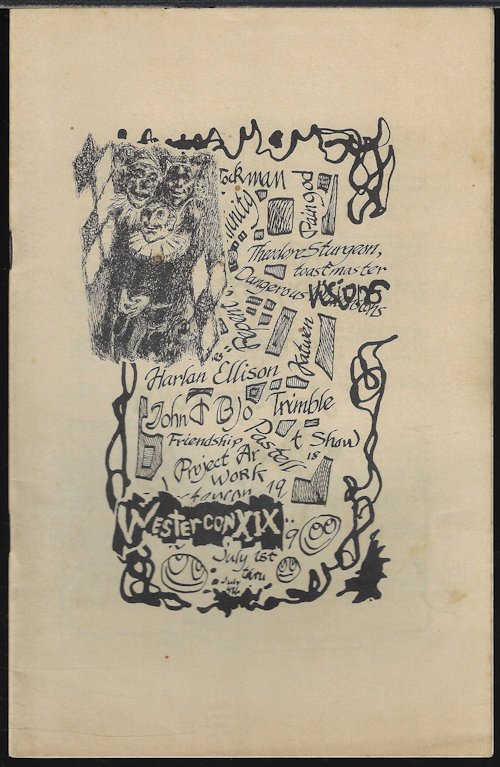 Tockman
Paingod
Theodore Sturgeon,
toastmaster
Dangerous Visions
Harlan Ellison
John & Bjo Trimble
Friendship Pastell
t Show
Project Ar
18
Work
19
WesterconXIX
9
July 1st
thru
July